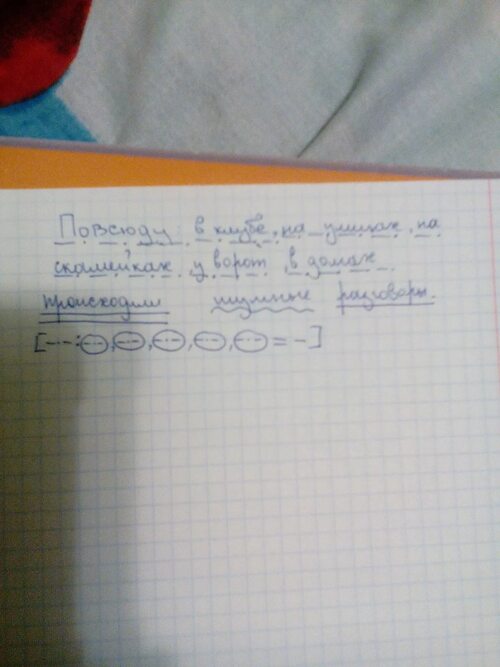 Повсюду: в клубе, на улицах, на
скамейках, у ворот, в домах
происходили шумные разговоры.
[---:---,---,---,---,---=-]